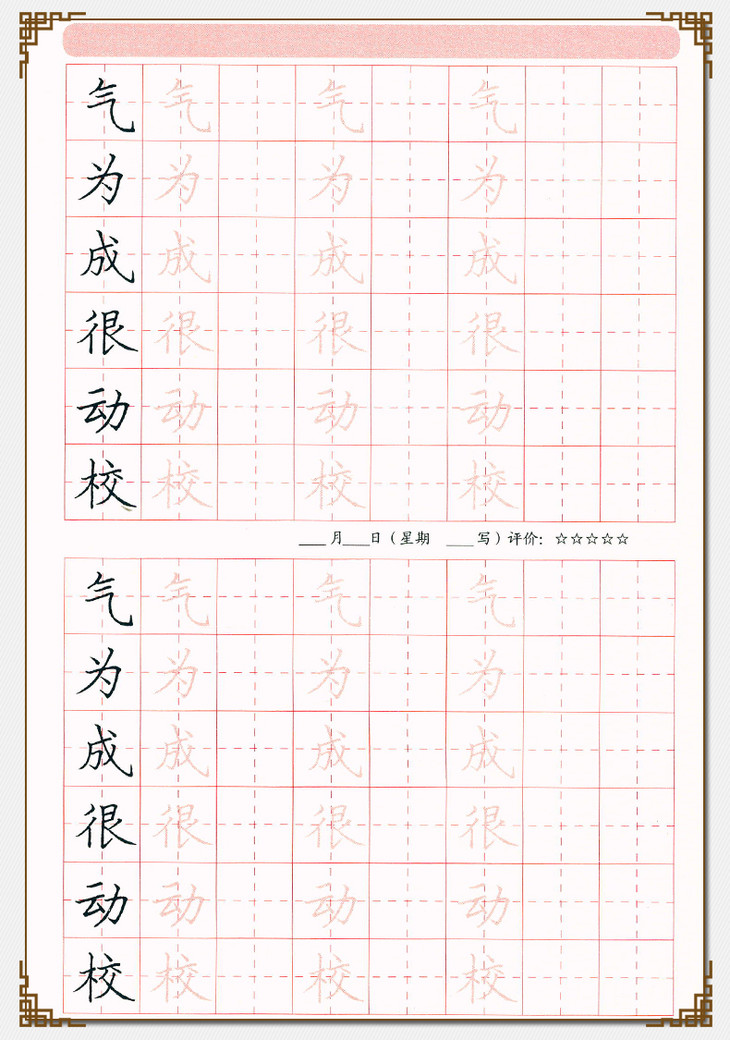 气 气 气 气
为 为 为 为
成 成 成 成
很 很 很 很
动 动 动 动
校 校 校 校
____ 月____日（星期 ____ 写）评价：☆☆☆☆☆
气 气 气 气
为 为 为 为
成 成 成 成
很 很 很 很
动 动 动 动
校 校 校 校